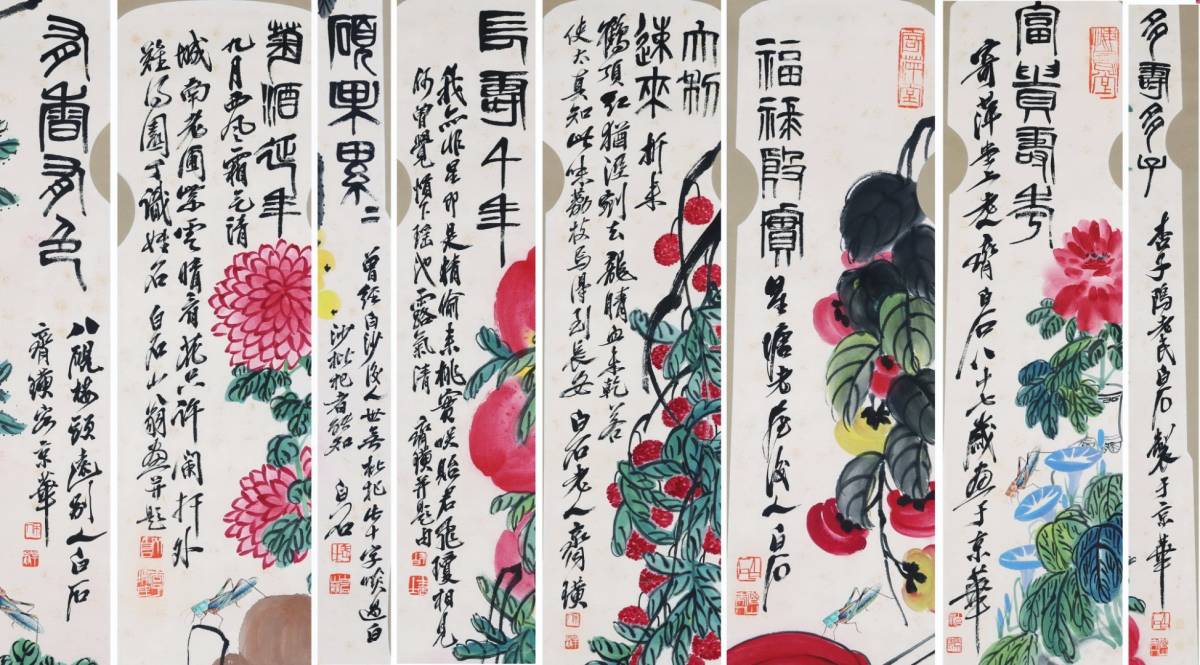 多香多色
八硯樓頭遠別人白石
齊璜客京華
菊酒延年
九月西風霜氣清
城南老圃紫雲晴看花只許闌杆外
難得園丁識姓名 白石山翁畫并題
碩果累二
曾經白沙後人世無枇杷此十字啖過白
沙枇杷者能知 白石
長壽千年
我無非是即是精偷來桃實 貽君飛瓊相見
何曾覺 下瑤池露氣清 齊璜并題句
大利
速來 折來
鶴頂紅猶濕剜去龍睛血未乾若
使太真知此味荔枝焉得到長安 白石老人齊璜
福祿殷實
星塘老屋後人白石
富貴壽考
寄萍堂上老人齊白石八十七歲畫于京華
多壽多子
杏子隖老民白石製于京華